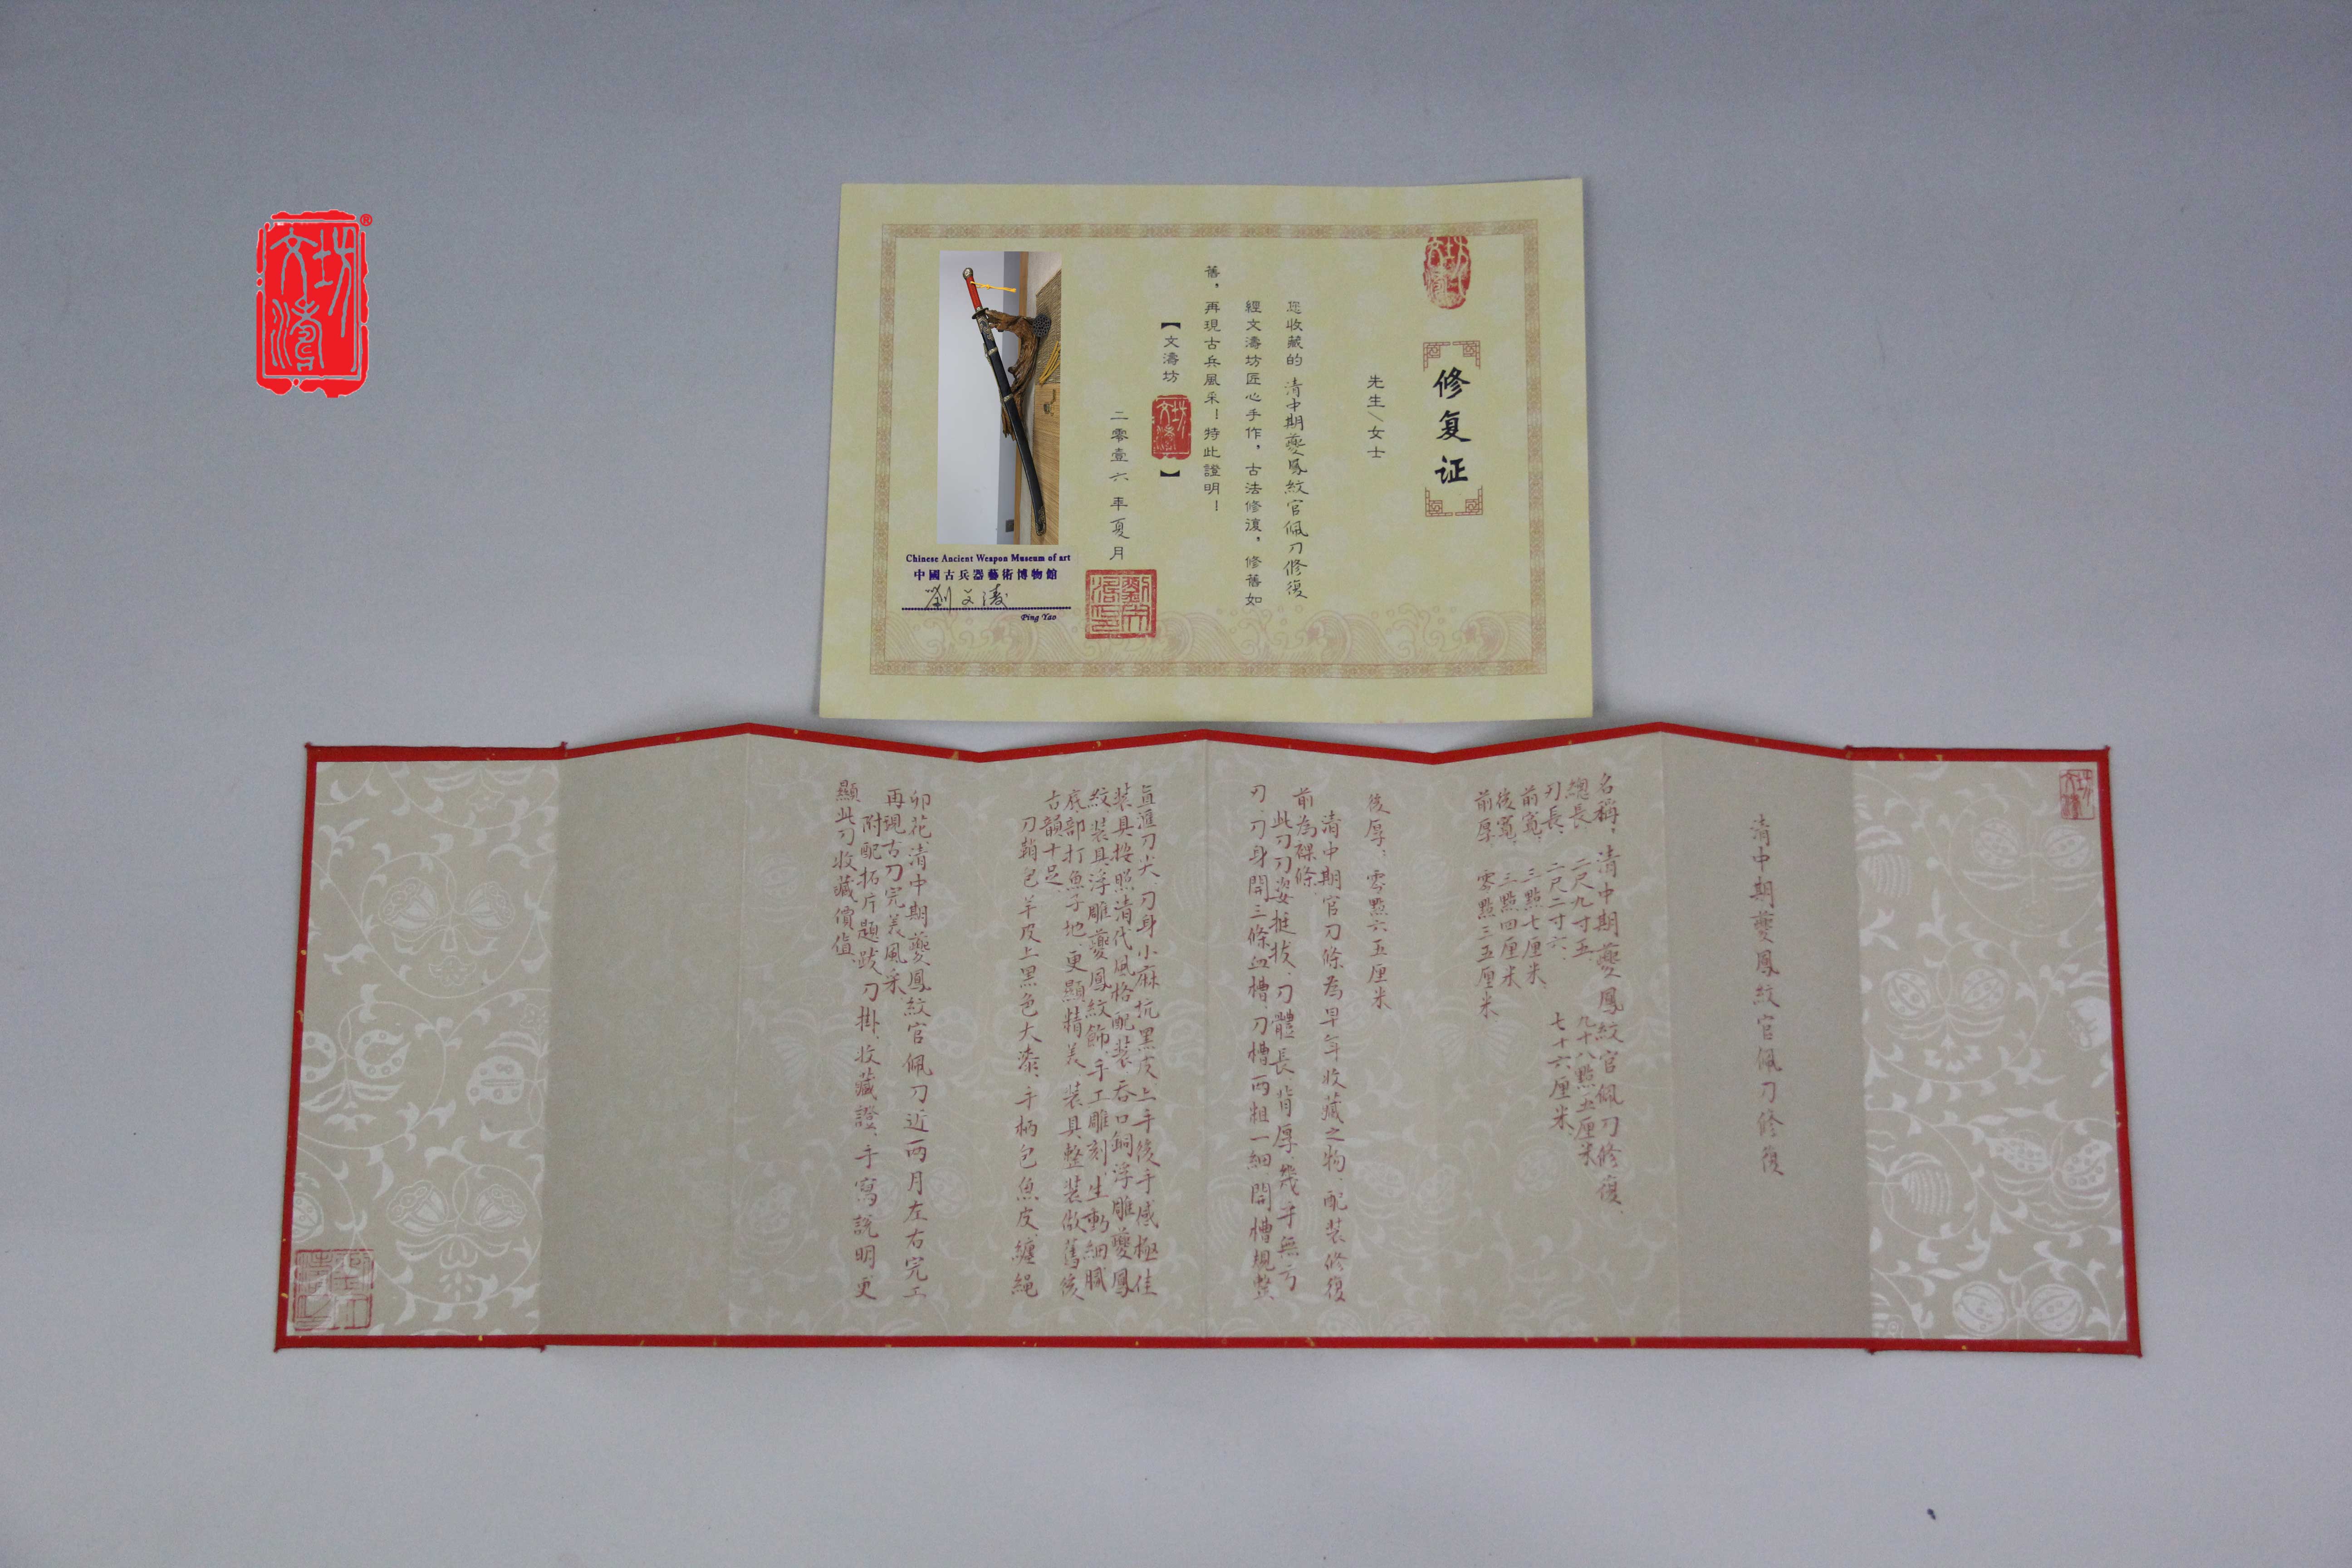 文濤坊
®
文濤坊
修复证
先生／女士
您收藏的 清中期夔鳳紋官佩刀修復
經文濤坊匠心手作，古法修復，修舊如
舊，再現古兵風采！特此證明！
【文濤坊 文濤坊 】
二零壹六年夏月
Chinese Ancient Weapon Museum of art
中國古兵器藝術博物館
劉文濤
Ping Yao
文濤坊
清中期夔鳳紋官佩刀修復
名稱，清中期夔鳳紋官佩刀修復、
總長 二尺九寸五、 九十八點五厘米
刃長、 二尺二寸六、 七十六厘米、
前寬、 三點七厘米、
後寬、 三點四厘米
前厚、 零點三五厘米
後厚，零點六五厘米
清中期官刀條為早年收藏之物、配裝修復
前為裸條、
此刀刀姿挺拔、刀體長背厚、幾乎無亏
刃、刀身開三條血槽、刀槽两粗一細開槽規整
直滙刀尖、刀身小麻坑黑皮、上手後手感極佳
装具按照清代風格配装、吞口銅浮雕夔鳳
紋、装具浮雕夔鳳紋飾、手工雕刻、生動細膩
底部打魚子地、更顯精美、装具整装做舊後
古韻十足、
刀鞘包羊皮上黑色大漆、手柄包魚皮、纏繩
卯花、清中期夔鳳紋官佩刀近两月左右完工
再現古刀完美風采、
附配拓片題跋、刀掛、收藏證、手寫說明更
顯此刀收藏價值、